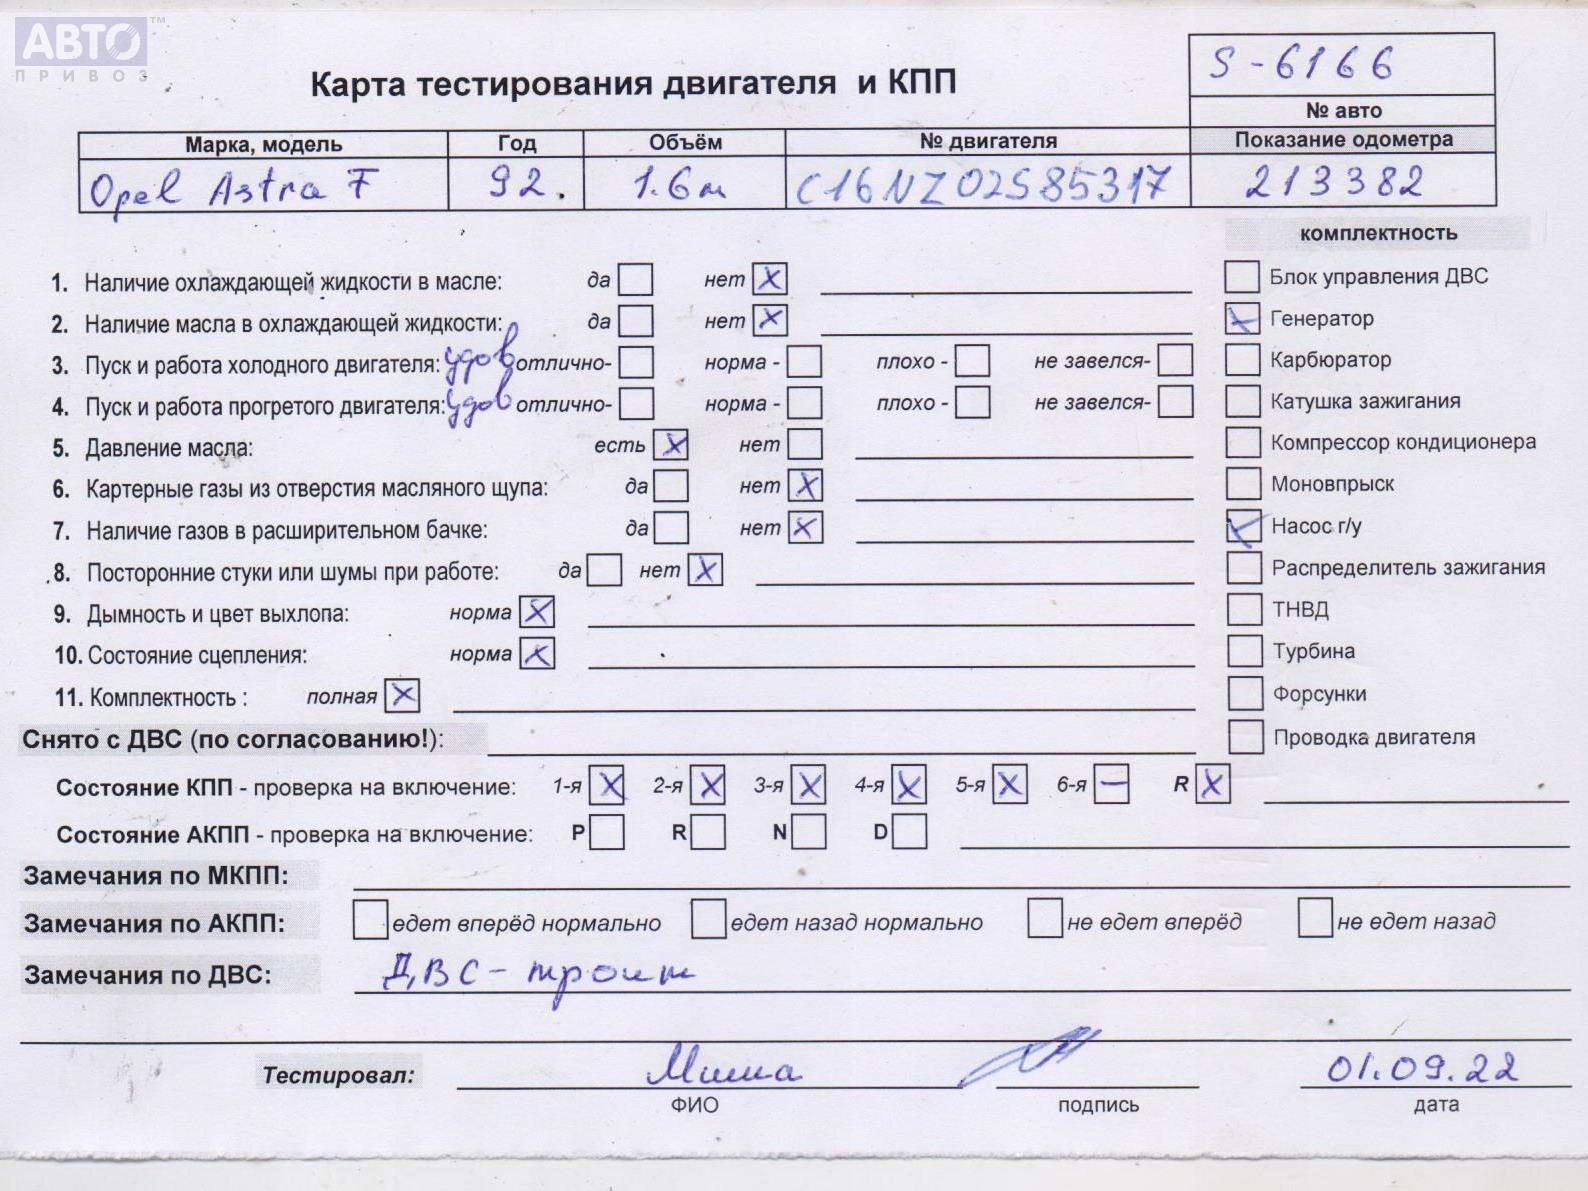 АВТО™
ПРИВОЗ
Карта тестирования двигателя и КПП
S-6166
№ авто
Марка, модель Год Объём № двигателя Показание одометра
Opel Astra F 92. 1.6м C16NZ02S85317 213382
комплектность
1. Наличие охлаждающей жидкости в масле: да нет x
Блок управления ДВС
2. Наличие масла в охлаждающей жидкости: да нет x
x Генератор
3. Пуск и работа холодного двигателя: удов отлично- норма - плохо - не завелся-
Карбюратор
4. Пуск и работа прогретого двигателя: удов отлично- норма - плохо - не завелся-
Катушка зажигания
5. Давление масла: есть x нет
Компрессор кондиционера
6. Картерные газы из отверстия масляного щупа: да нет x
Моновпрыск
7. Наличие газов в расширительном бачке: да нет x
x Насос г/у
8. Посторонние стуки или шумы при работе: да нет x
Распределитель зажигания
9. Дымность и цвет выхлопа: норма x
ТНВД
10. Состояние сцепления: норма x
Турбина
11. Комплектность : полная x
Форсунки
Снято с ДВС (по согласованию!):
Проводка двигателя
Состояние КПП - проверка на включение: 1-я x 2-я x 3-я x 4-я x 5-я x 6-я – R x
Состояние АКПП - проверка на включение: P R N D
Замечания по МКПП:
Замечания по АКПП: едет вперёд нормально едет назад нормально не едет вперёд не едет назад
Замечания по ДВС: ДВС - троит
Тестировал: Миша 01.09.22
ФИО подпись дата